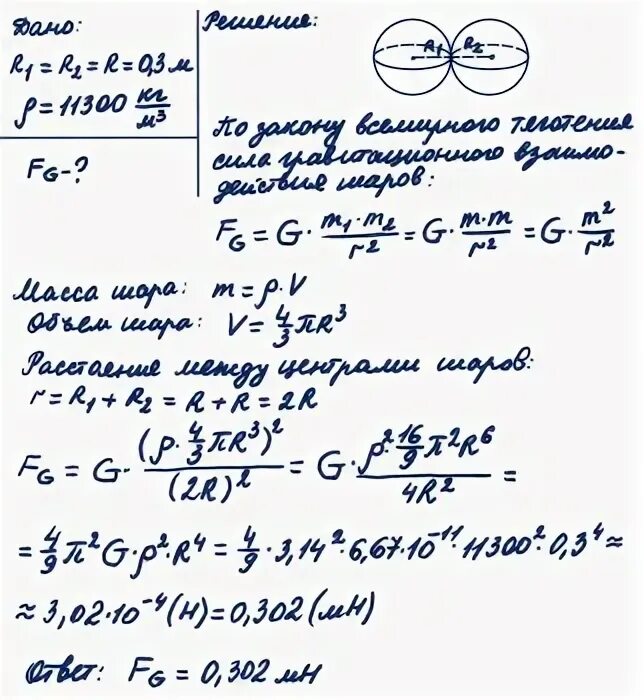 Дано:
R₁ = R₂ = R = 0,3 м
ρ = 11300 кг/м³
F_G - ?
Решение:
R₁ R₂
По закону всемирного тяготения
сила гравитационного взаимо-
действия шаров:
F_G = G · (m₁ · m₂)/r² = G · (m · m)/r² = G · m²/r²
Масса шара: m = ρ · V
Объем шара: V = 4/3 πR³
Расстаение между центрами шаров:
r = R₁ + R₂ = R + R = 2R
F_G = G · (ρ · 4/3 πR³)²/(2R)² = G · (ρ² · 16/9 π²R⁶)/4R² =
= 4/9 π² G · ρ² · R⁴ = 4/9 · 3,14² · 6,67 · 10⁻¹¹ · 11300² · 0,3⁴ ≈
≈ 3,02 · 10⁻⁴ (Н) = 0,302 (мН)
Ответ: F_G = 0,302 мН